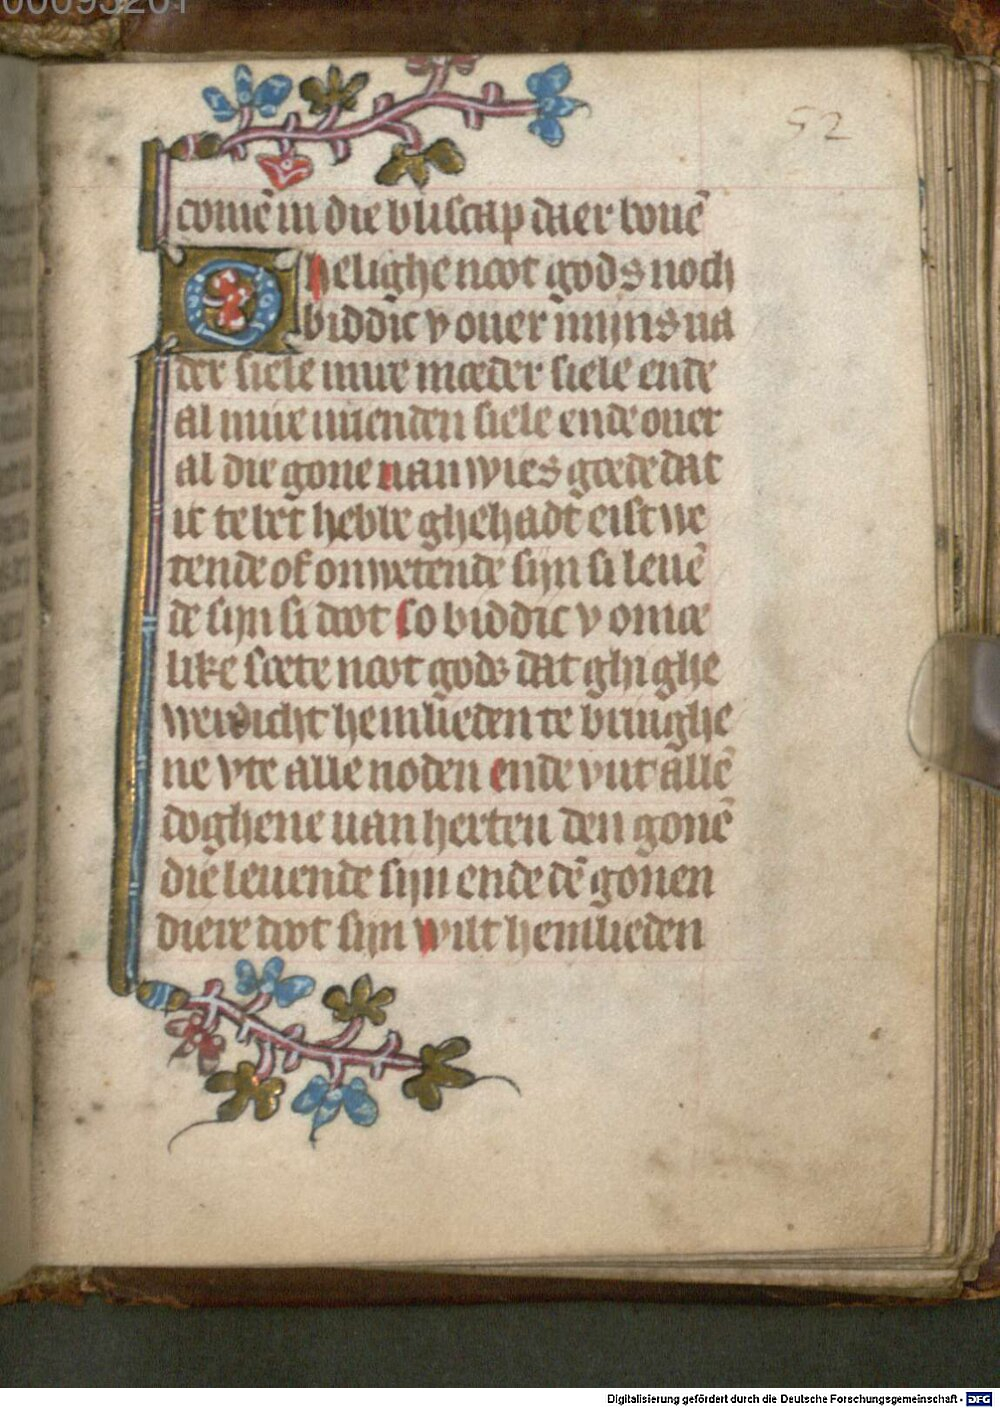 52
comē in die bliscap daer bouē
O helighe noot gods noch
biddic v ouer mijns va
der siele mire moeder siele ende
al mire vrienden siele ende ouer
al die gone van wies goede dat
ic te bet hebbe ghehadt eist we
tende of onwetende sijn si leuē
de sijn si doot so biddic v omoe
like soete noot gods dat ghi ghe
werdicht hemlieden te bringhe
ne vte alle noden ende vut allē
doghene van herten den gonē
die leuende sijn ende dē gonen
diere doot sijn wilt hemlieden
Digitalisierung gefördert durch die Deutsche Forschungsgemeinschaft - DFG